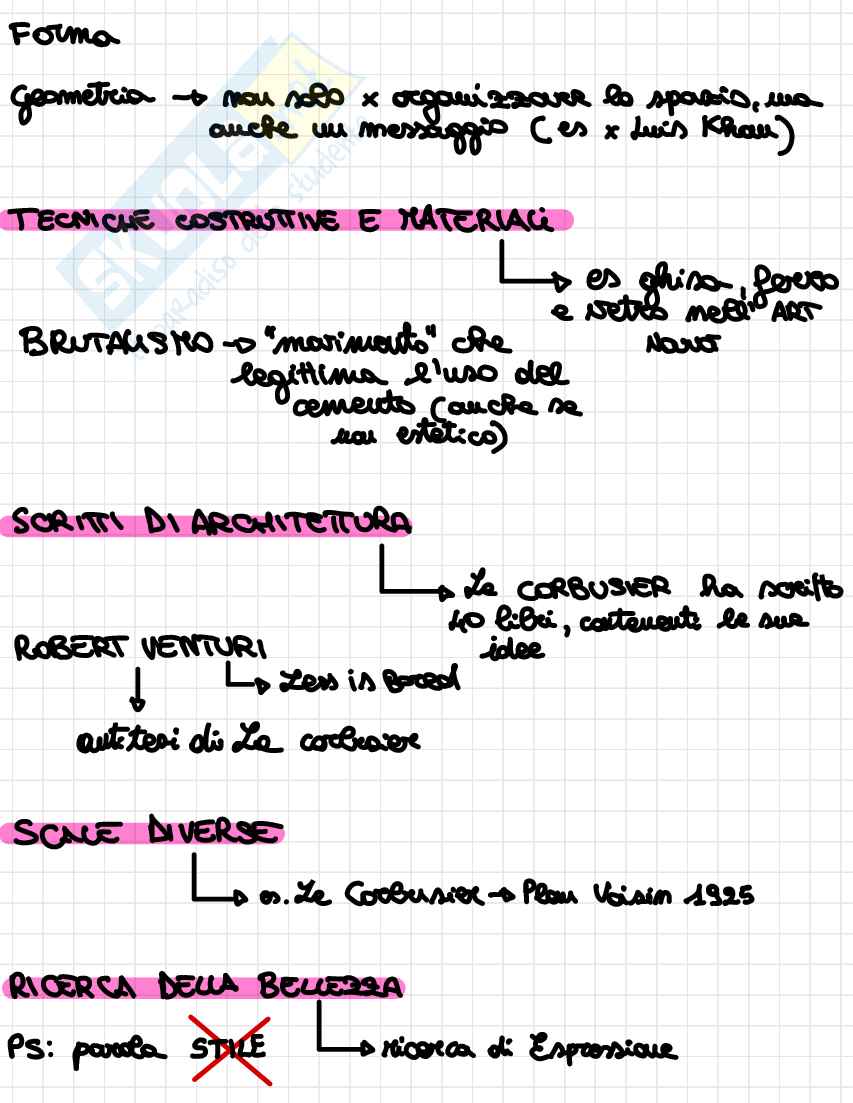 Forma
Geometria → non solo x organizzare lo spazio, ma
anche un messaggio (es x Luis Khan)
TECNICHE COSTRUTTIVE E MATERIALI
→ es ghisa, ferro
e vetro nell' ART
NOUV
BRUTALISMO → "movimento" che
legittima l'uso del
cemento (anche se
non estetico)
SCRITTI DI ARCHITETTURA
→ Le CORBUSIER ha scritto
40 libri, contenenti le sue
idee
ROBERT VENTURI
→ Less is Bored
antitesi di Le corbusier
SCALE DIVERSE
→ es. Le Corbusier → Plan Voisin 1925
RICERCA DELLA BELLEZZA
PS: parola STILE → ricerca di Espressione
SKUOLA.net
paradiso dello studente